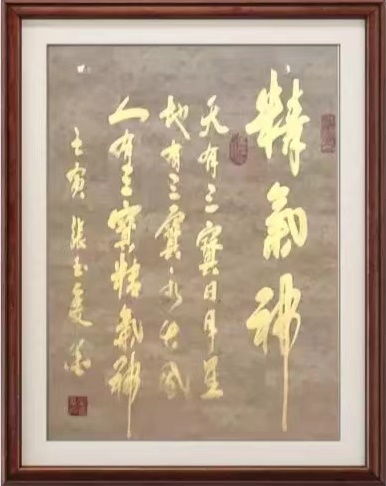 精氣神
天有三寶日月星
地有三寶水火風
人有三寶精氣神
壬寅 張玉